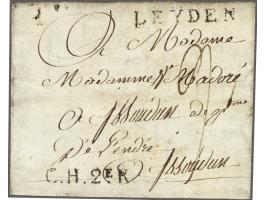 LEYDEN
A Madame
Madamme Vᵉ Nadoré
A Issoudun
De L'endre
Issoudun
C.H. 2ᴱ R.